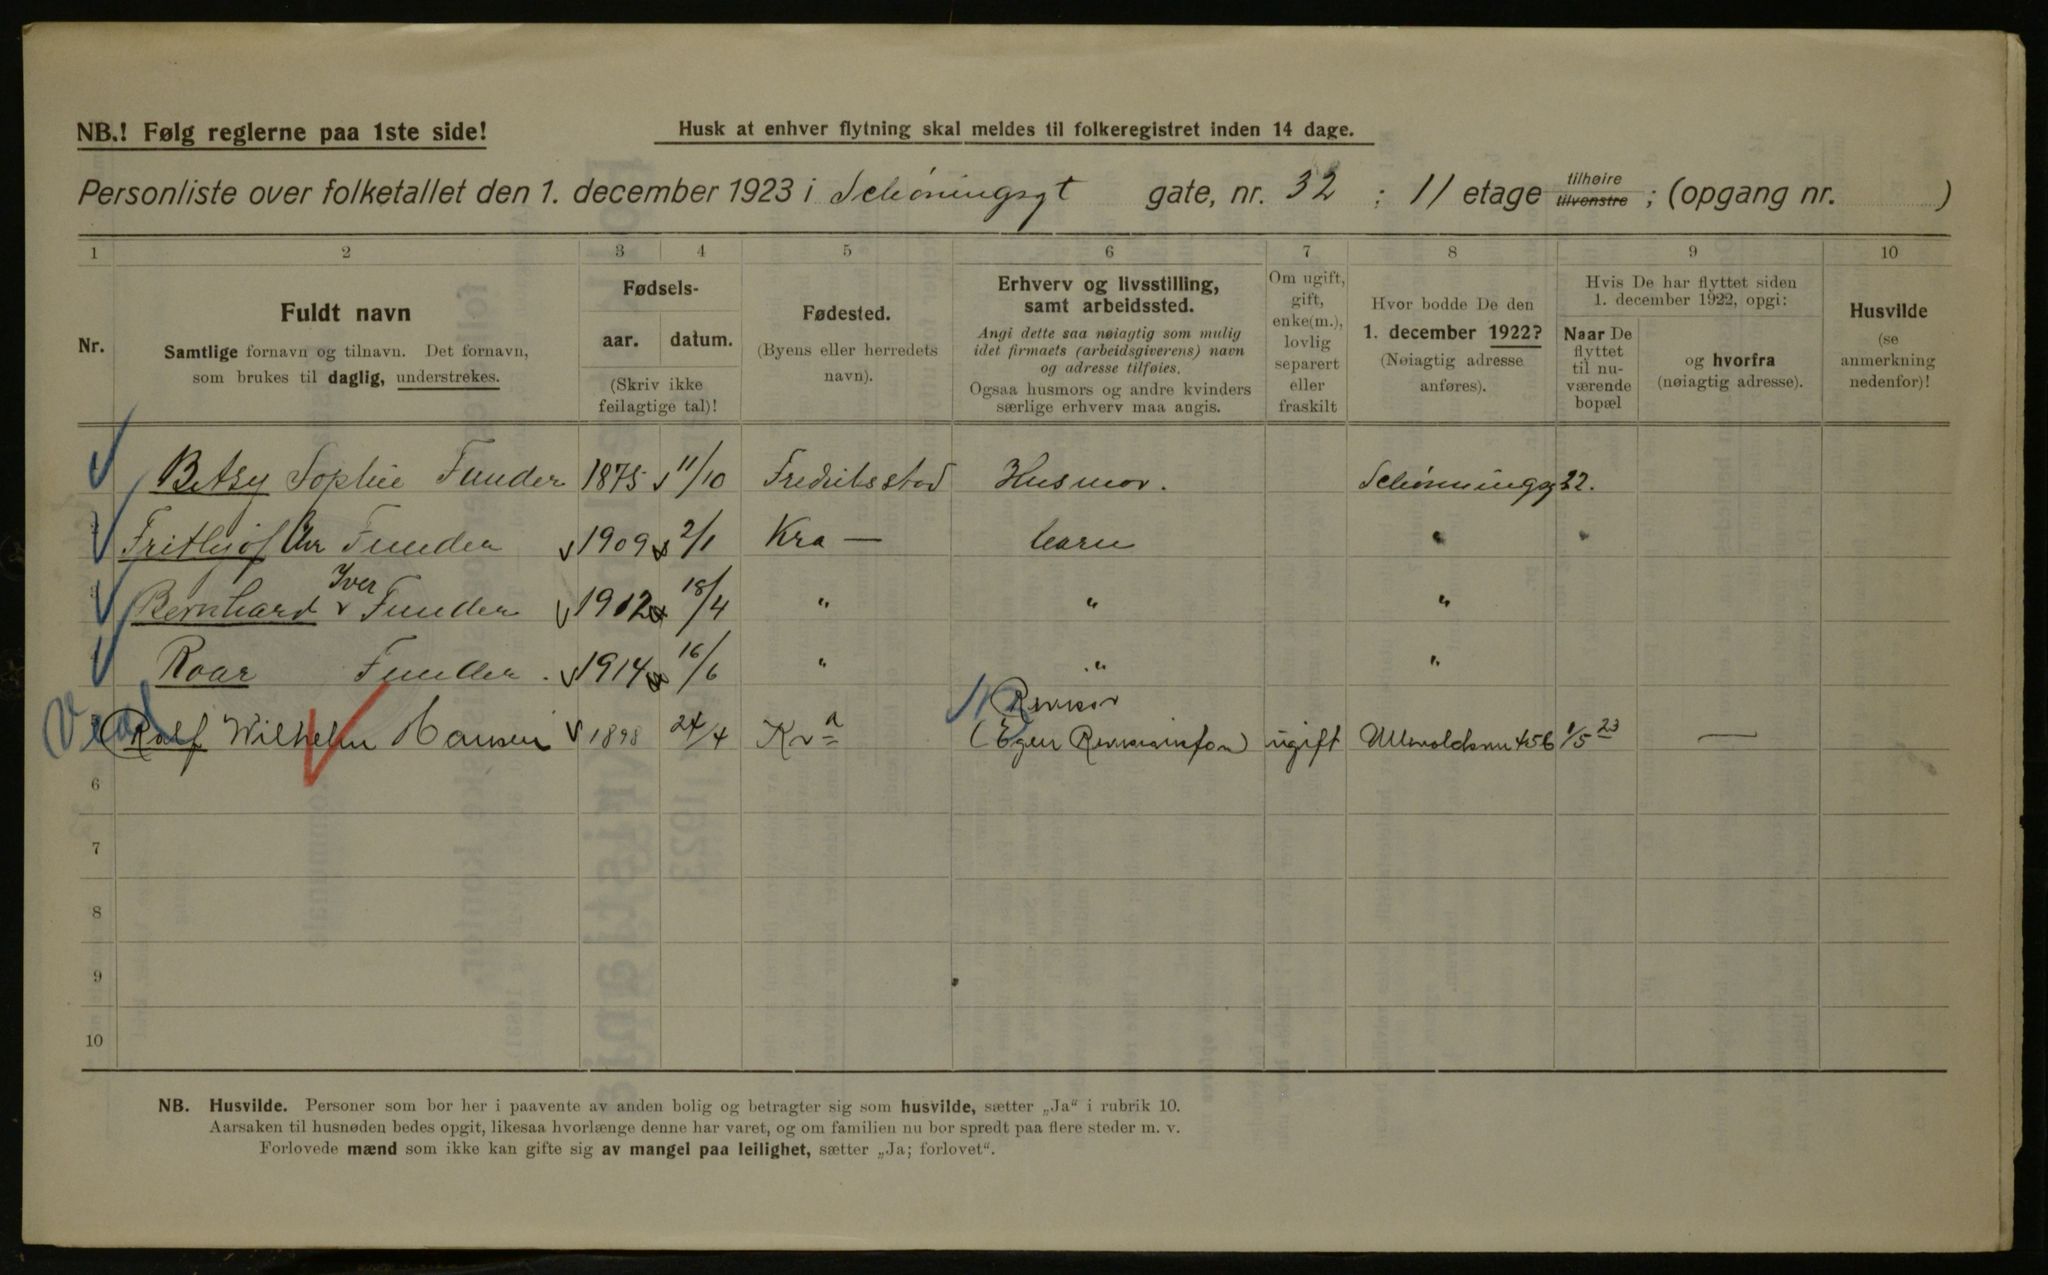 NB.! Følg reglerne paa 1ste side!
Husk at enhver flytning skal meldes til folkeregistret inden 14 dage.
Personliste over folketallet den 1. december 1923 i Schøningsgt gate, nr. 32 ; 11 etage tilhøire tilvenstre ; (opgang nr. )
1 2 3 4 5 6 7 8 9 10
Nr.
Fuldt navn
Samtlige fornavn og tilnavn. Det fornavn,
som brukes til daglig, understrekes.
Fødsels-
aar. datum.
(Skriv ikke
feilagtige tal)!
Fødested.
(Byens eller herredets
navn).
Erhverv og livsstilling,
samt arbeidssted.
Angi dette saa nøiagtig som mulig
idet firmaets (arbeidsgiverens) navn
og adresse tilføies.
Ogsaa husmors og andre kvinders
særlige erhverv maa angis.
Om ugift,
gift,
enke(m.),
lovlig
separert
eller
fraskilt
Hvor bodde De den
1. december 1922?
(Nøiagtig adresse
anføres).
Hvis De har flyttet siden
1. december 1922, opgi:
Naar De
flyttet
til nu-
værende
bopæl
og hvorfra
(nøiagtig adresse).
Husvilde
(se
anmerkning
nedenfor)!
Betsy Sophie Funder 1875 11/10 Fredriksstad Husmor. Schønningsg 32.
Frithjof Chr Funder 1909 2/1 Kra — barn " "
Bernhard Iver Funder 1912 18/4 " " "
Roar Funder. 1914 16/6 " " "
Ralf Wilhelm Hansen 1898 24/4 Kra Revisor
(Egen ugift Ullevoldsvn 456 1/5 23 —
6
7
8
9
10
NB. Husvilde. Personer som bor her i paavente av anden bolig og betragter sig som husvilde, sætter „Ja" i rubrik 10.
Aarsaken til husnøden bedes opgit, likesaa hvorlænge denne har varet, og om familien nu bor spredt paa flere steder m. v.
Forlovede mænd som ikke kan gifte sig av mangel paa leilighet, sætter „Ja; forlovet".